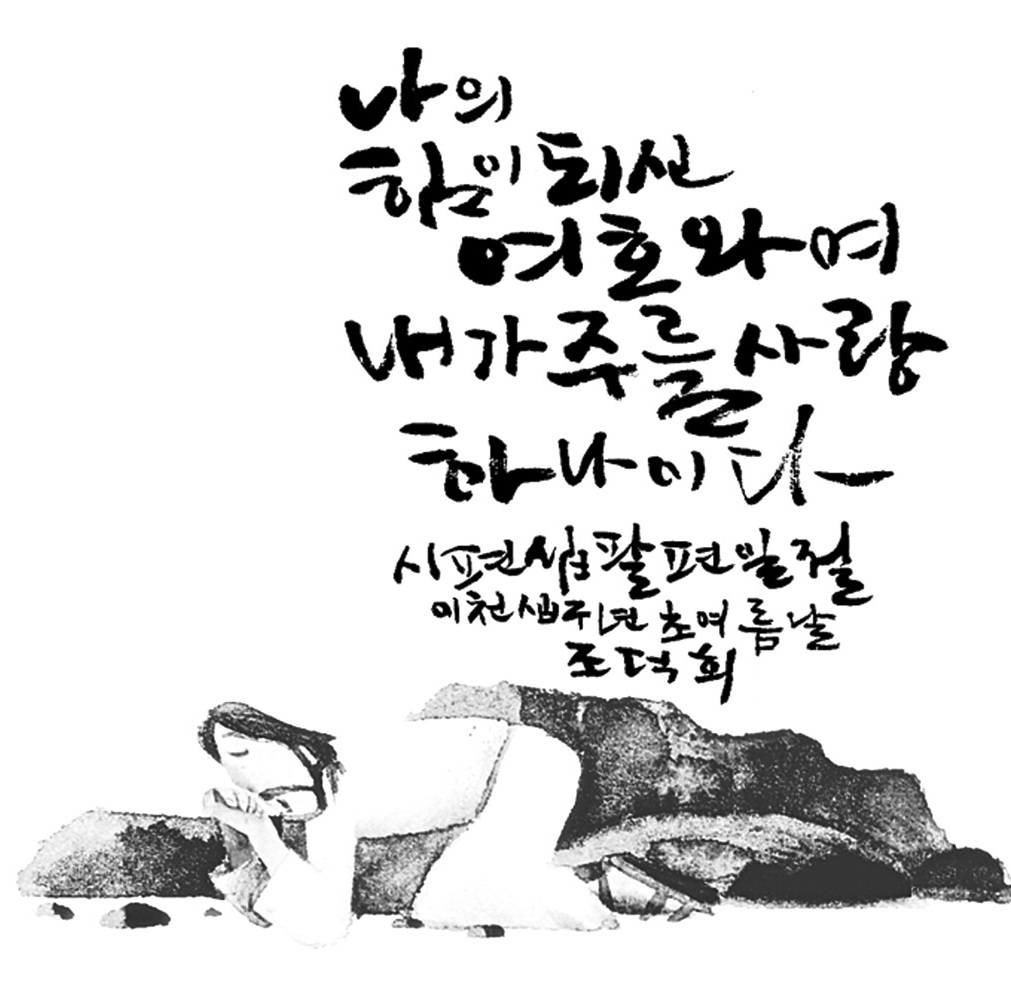 나의
힘이 되신
여호와여
내가 주를 사랑
하나이다
시편 십팔편 일절
이천십구년 초여름날
조덕희